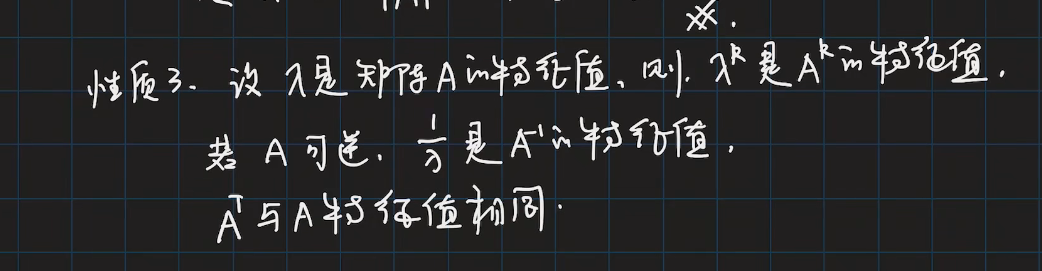 ※.
性质3. 设 λ是矩阵A的特征值, 则, λᵏ是Aᵏ的特征值.
若 A可逆, 1/λ 是A⁻¹的特征值,
Aᵀ与A特征值相同.